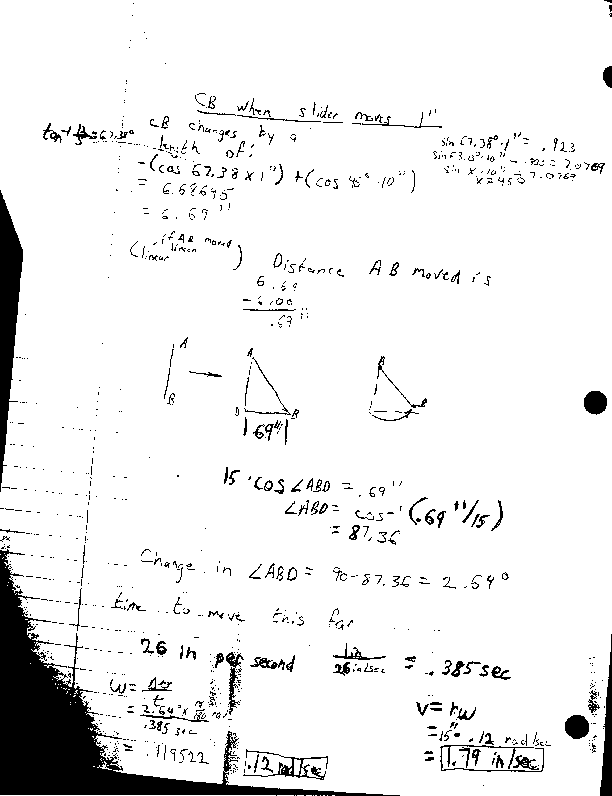 CB when slider moves 1"
tan⁻¹ 12/5 = 67.38°
CB changes by a
length of:
-(cos 67.38 x 1") + (cos 45° · 10")
= 6.68695
= 6.69"
sin 67.38° · 1" = .923
sin 53.13° · 10" - .923 = 7.0769
sin x · 10" = 7.0769
x = 45°
(if AB moved
linear)
Distance AB moved is
6.69
-6.00
.69"
A
B
A
D
B
.69"
A
B
15 · cos ∠ABD = .69"
∠ABD = cos⁻¹ (.69"/15)
= 87.36
Change in ∠ABD = 90-87.36 = 2.64°
time to move this far
26 in per second 1in / 26 in/sec = .385 sec
ω = Δ / t
= 2.64° x π/180 / .385 sec
= .119522
.12 rad/sec
v = rω
= 15" · .12 rad/sec
= 1.79 in/sec